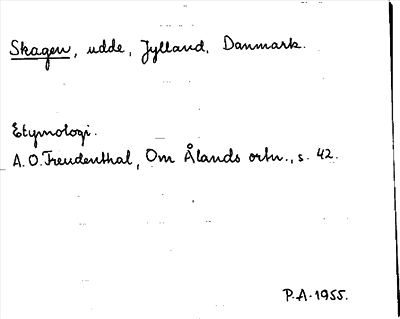 Skagen, udde, Jylland, Danmark.
Etymologi.
A. O. Freudenthal, Om Ålands ortn., s. 42.
P.A. 1955.